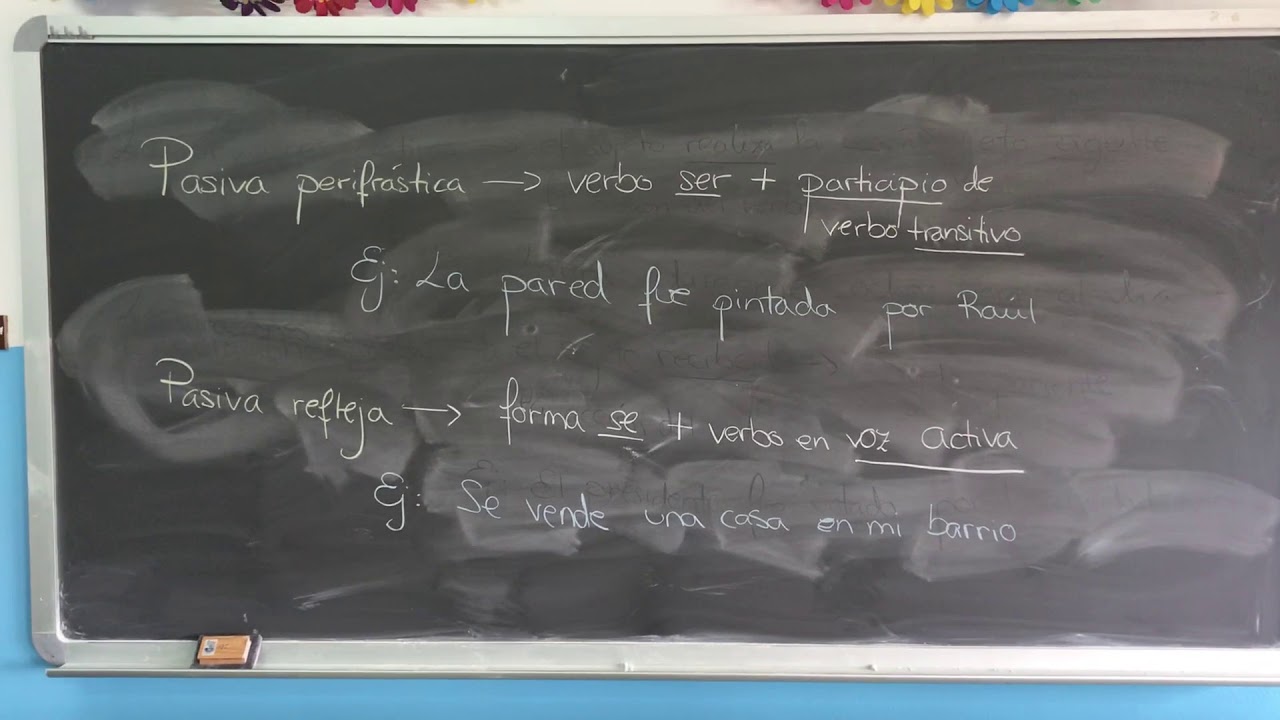 Pasiva perifrástica → verbo ser + participio de
verbo transitivo
Ej: La pared fue pintada por Raúl
Pasiva refleja → forma se + verbo en voz activa
Ej: Se vende una casa en mi barrio